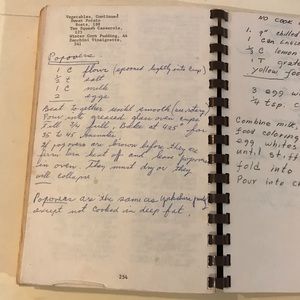 Vegetables, Continued
Sweet Potato
Boats, 100
Two Squash Casserole,
123
Winter Corn Pudding, 44
Zucchini Vinaigrette,
341
Popovers
1 C flour (spooned lightly into cup)
1/2 t salt
1 C milk
2 eggs
Beat together until smooth
Pour into greased glass oven cups
Fill 3/4 full. Bake at 425° for
35 to 45 minutes.
If popovers are brown before they are
turn heat off and leave popovers
in oven. They must dry or they
will collapse.
Popovers are the same as Yorkshire pudding
except not cooked in deep fat.
254
NO COOK
1. 9" chilled
1 can
1/3 C lemon
1 T grated
yellow foo
3 egg wh
1/4 tsp.
Combine milk
food coloring
egg whites
until stiff
fold into
Pour into c